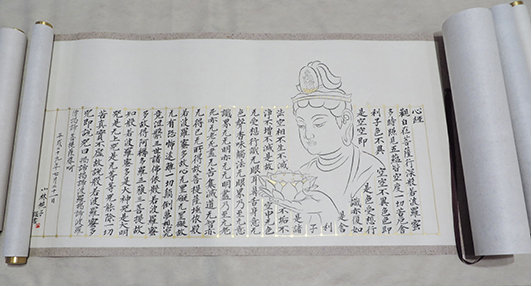 心経
観自在菩薩行深般若波羅蜜
多時照見五蘊皆空度一切苦厄舎
利子色不異空空不異色色即
是空空即是色受想行
識亦復如
是舎
利子
是諸
法空相不生不滅不垢不
浄不増不減是故空中无色
无受想行識无眼耳鼻舌身意无
色声香味触法无眼界乃至无意
識界无无明亦无无明盡乃至无老
死亦无老死盡无苦集滅道无智亦
无得以无所得故菩提薩埵依般
若波羅蜜多故心无罣礙无罣礙故
无有恐怖遠離一切顛倒夢想究
竟涅槃三世諸佛依般若波羅蜜
多故得阿耨多羅三藐三菩提故
知般若波羅蜜多是大神咒是大明
咒是无上咒是无等等咒能除一切
苦真實不虚故説般若波羅蜜多
咒即説咒曰掲諦掲諦波羅掲諦波羅
僧掲諦菩提娑婆訶
平成